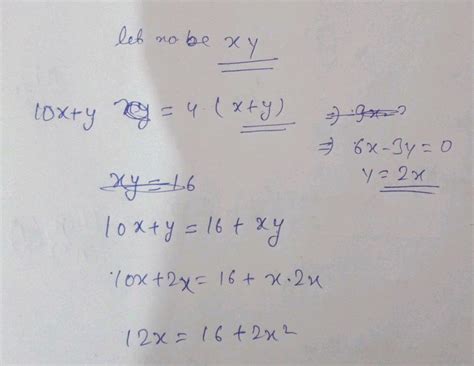 let no be xy
10x+y = 4 (x+y)
⇒ 6x-3y=0
y=2x
xy=16
10x+y=16+xy
10x+2x=16+x·2x
12x=16+2x²